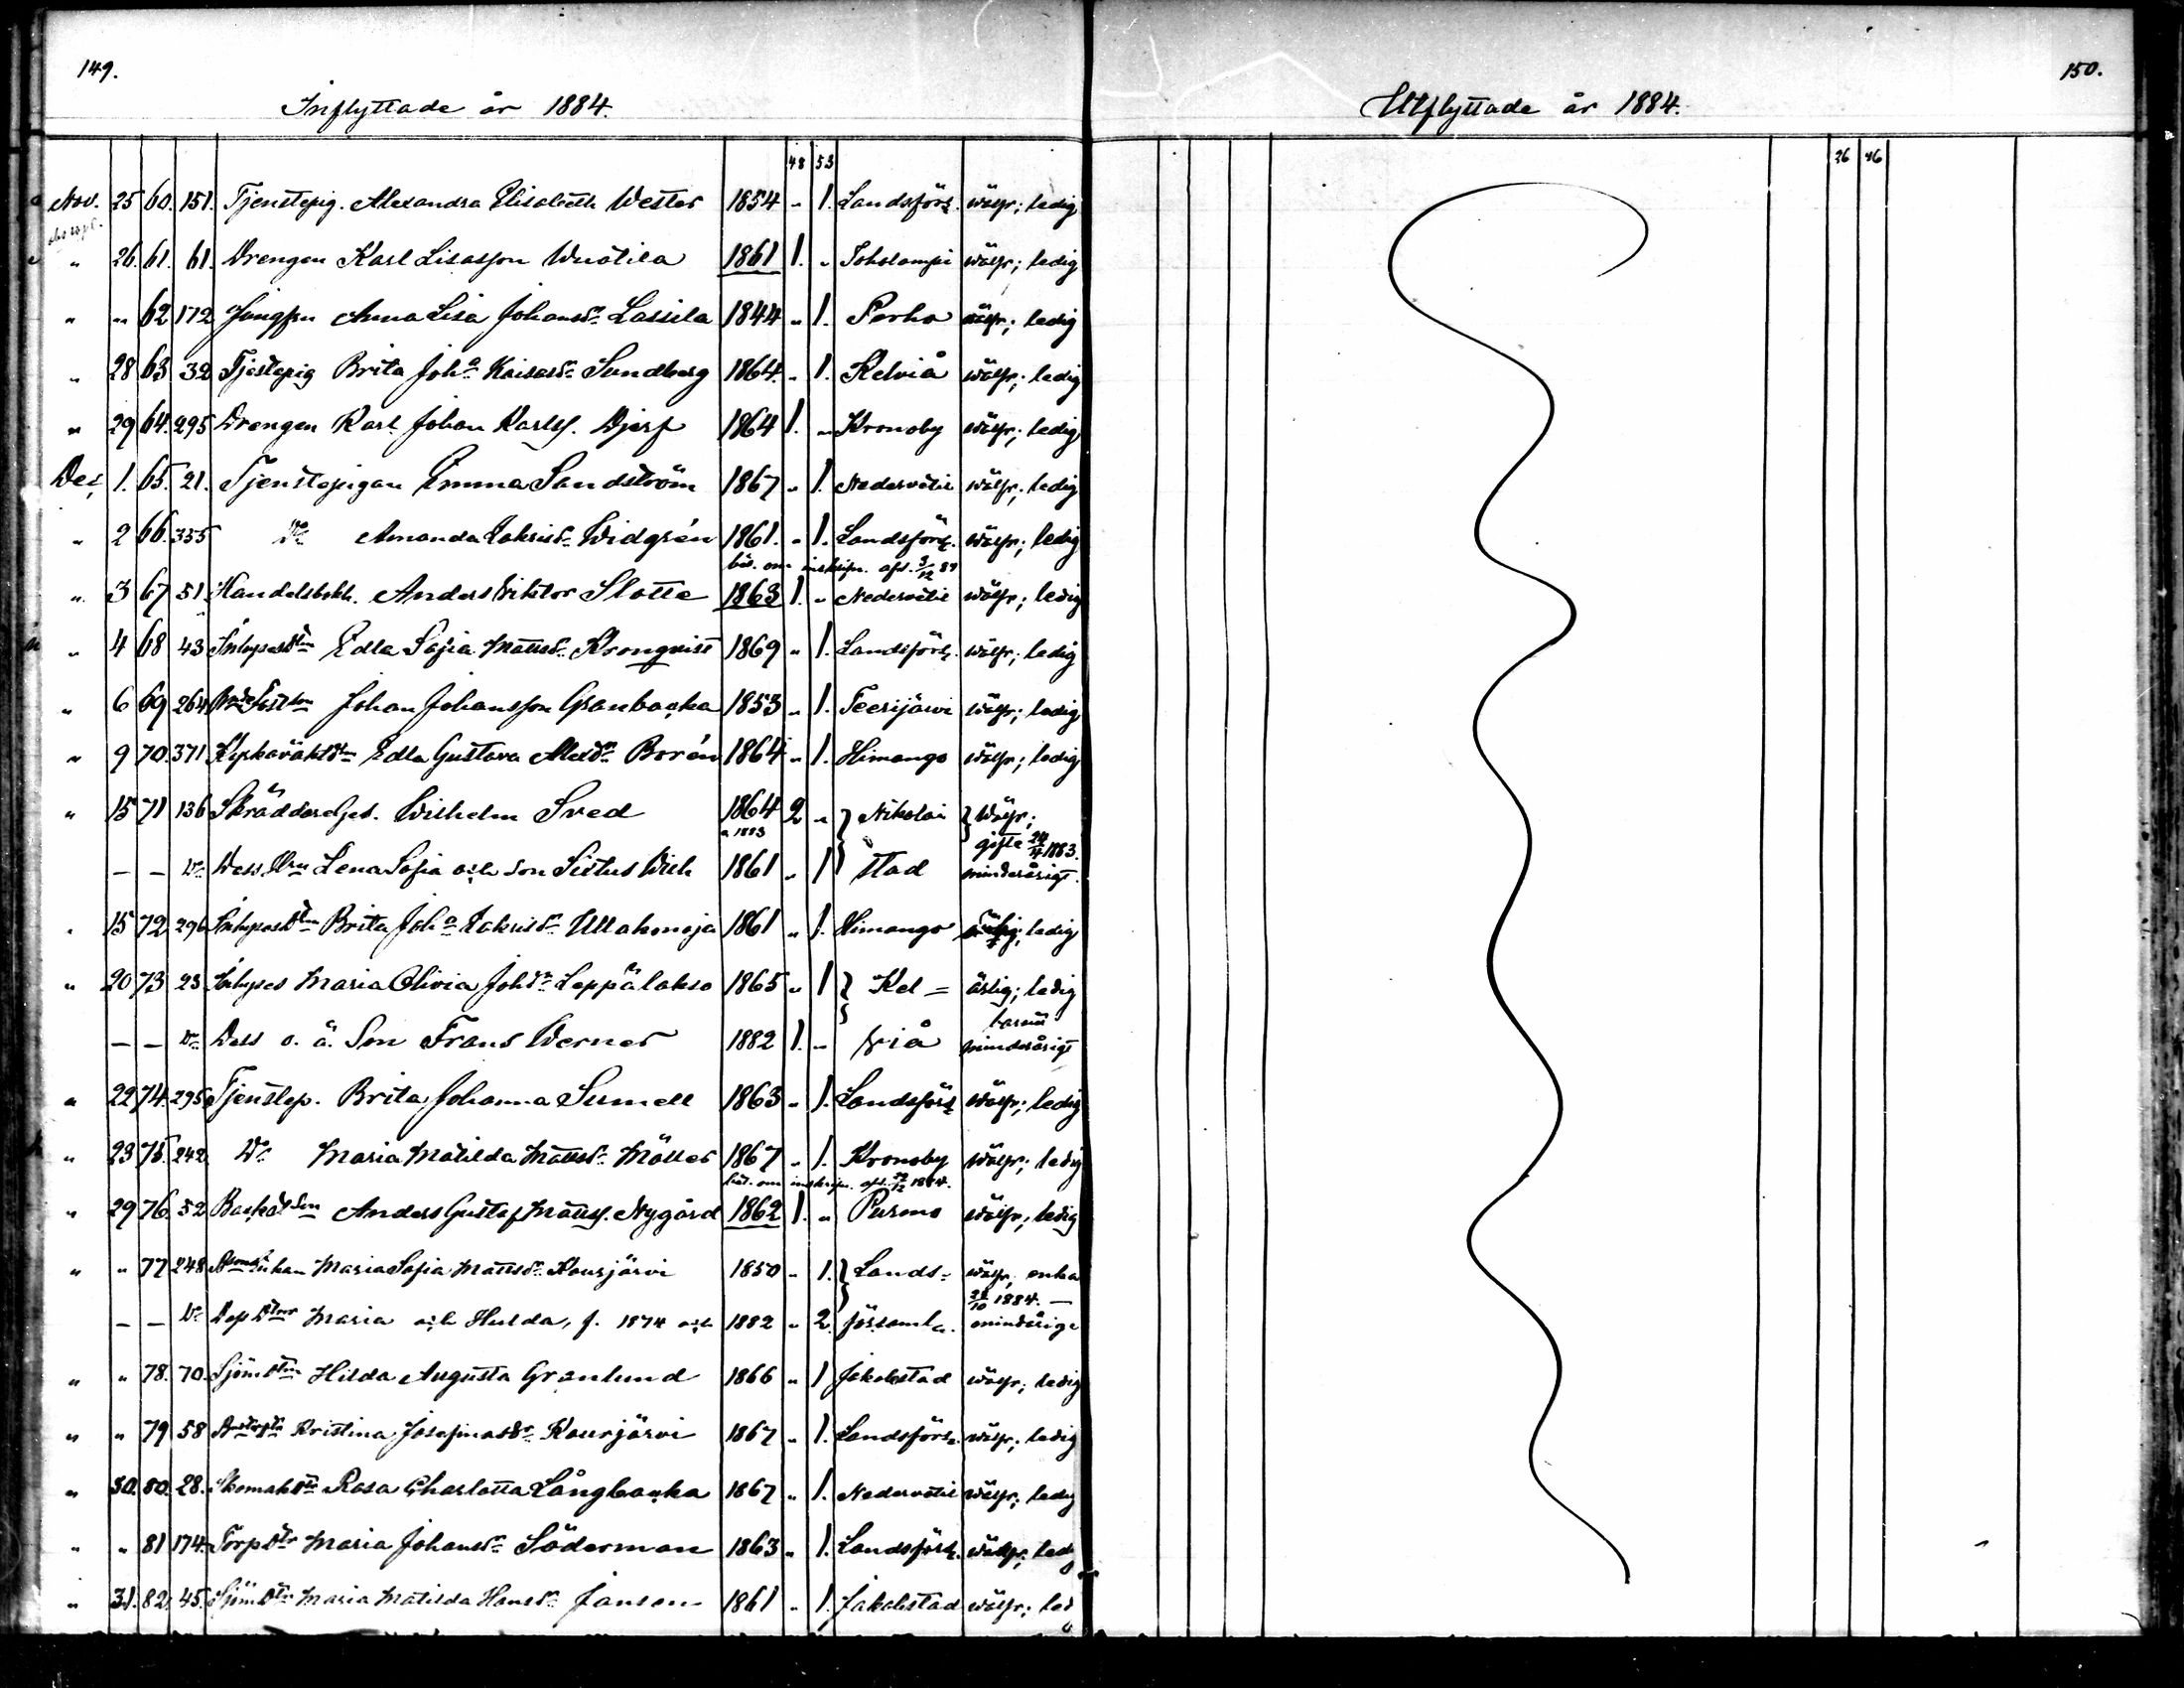 149.
Inflyttade år 1884.
48 53
Nov. 25 60. 151. Tjenstepig. Alexandra Elisabeth Wester 1854 " 1. Landsförs. wälfr; ledig
" 26. 61. 61. Drengen Karl Lisasson Wuotila 1861 1. " Toholampi wälfr; ledig
" " 62 172 Jungfru Anna Lisa Johansdr Lassila 1844 " 1. Perho wälfr; ledig
" 28 63 32 Tjestepig Brita Joha Kaisasdr Sundberg 1864. " 1. Kelviå wälfr; ledig
" 29 64. 295 Drengen Karl Johan Karlss. Djerf 1864 1. " Kronoby wälfr; ledig
Dec. 1. 65. 21. Tjenstepigan Emma Sandström 1867 " 1. Nedervetil wälfr; ledig
" 2 66. 355 Do Amanda Jakobsdr Widgrén 1861. " 1. Landsförs. wälfr; ledig
bev. om inskripn. afd. 3/12 84
" 3 67 51. Handelsbokh. Anders Viktor Slotte 1863 1. " Nedervetil wälfr; ledig
" 4 68 43 Inhysesdtrn Edla Sofia Mattsdr Kronqvist 1869 " 1. Landsförs. wälfr; ledig
" 6 69 264 Johan Johansson Granbacka 1853 " 1. Teerijärvi wälfr; ledig
" 9 70. 371 Edla Gustava Alexdr Borén 1864 " 1. Himango wälfr; ledig
" 15 71 136 Skräddareges. Wilhelm Sved 1864 2 " Nikolai wälfr;
gifte 24/4 1883.
— — Do Dess Hru Lena Sofia och Son Sixtus Wilh 1861 " 1 stad minderårigt.
" 15 72 296 Inhysesdtrn Brita Joha Jakobsdr Ullakonoja 1861 " 1. Himango ledig
" 20 73 23 Inhyses Maria Olivia Johdr Leppälakso 1865 " 1 Kel= ärlig; ledig
barnet
— — Do Dess o. ä. Son Frans Werner 1882 1. " viå minderårigt
" 22 74. 295 Tjenstep. Brita Johanna Sumell 1863 " 1. Landsförs wälfr; ledig
" 23 75. 242 Do Maria Matilda Mattsdr Möller 1867 " 1. Kronoby wälfr; ledig
bev. om inskripn. afd. 1884.
" 29 76. 52 Anders Gustaf Mattss. Nygård 1862 1. " Purmo wälfr; ledig
" " 77 248 Maria Sofia Mattsdr Kaurjärvi 1850 " 1. Lands= wälfr, enka
1884. —
— — Do Maria och Hulda, f. 1874 och 1882 " 2. församl. minderåriga
" " 78. 70. Sjömdtrn Hilda Augusta Granlund 1866 " 1 Jakobstad wälfr; ledig
" " 79 58 Kristina Josefinasdr Kaurjärvi 1867 " 1. Landsförs. wälfr; ledig
" 30. 80. 28. Skomakdtrn Rosa Charlotta Långbacka 1867 " 1. Nedervetil wälfr; ledig
" " 81 174. Torpdtr Maria Johansdr Söderman 1863 " 1. Landsförs. wälfr; led
" 31. 82. 45. Sjömdtrn Maria Matilda Hansdr Janson 1861 " 1. Jakobstad wälfr; led
150.
Utflyttade år 1884.
26 46